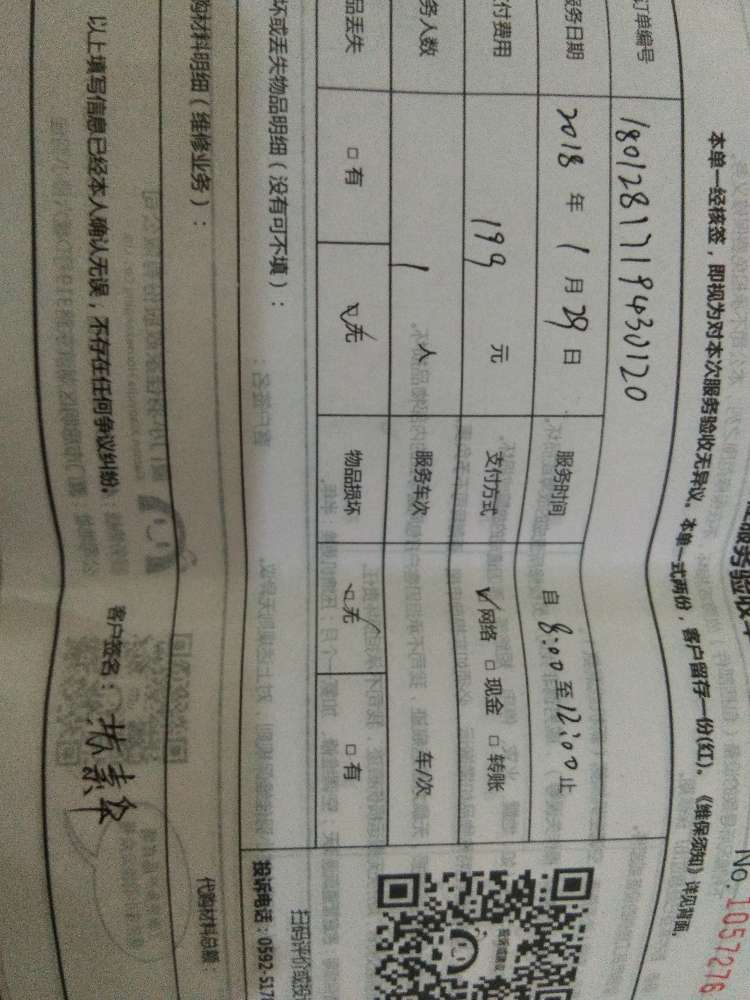 服务验收单
No: 1057276
本单一经核签，即视为对本次服务验收无异议。本单一式两份，客户留存一份(红)。《维保须知》详见背面。
订单编号 180128171943 0120
服务日期 2018 年 1 月 29 日 服务时间 自 8:00 至 12:00 止
付费用 199 元 支付方式 ☑网络 □现金 □转账
务人数 1 人 服务车次 车/次
品丢失 □有 ☑无 物品损坏 ☑无 □有
坏或丢失物品明细（没有可不填）：
扫码评价或投
投诉电话：0592-517
购材料明细（维修业务）：
代购材料总额
以上填写信息已经本人确认无误，不存在任何争议纠纷。
客户签名：